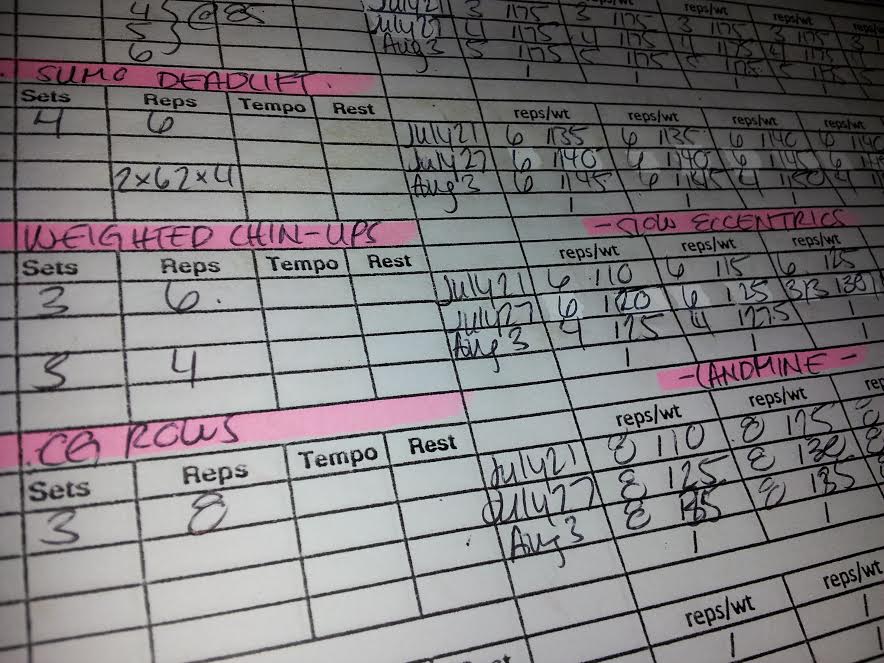 4
5 @ 85
6
July 21 3 175 3 175
July 27 4 175 4 175 3 175 3 175
Aug 3 5 175 5 175 4 175 4 175
reps/wt reps/wt reps/wt
SUMO DEADLIFT.
Sets Reps Tempo Rest reps/wt reps/wt reps/wt reps/wt
4 6 July 21 6 135 6 135 6 140 6 140
July 27 6 140 6 140 6 145 6
2x6 2x4 Aug 3 6 145 6 145 4 150 4
WEIGHTED CHIN-UPS - SLOW ECCENTRICS
Sets Reps Tempo Rest reps/wt reps/wt reps/wt
3 6. July 21 6 10 6 15 6 25
July 27 6 20 6 25 3/3 30
Aug 3 4 25 4 27.5
3 4
CG ROWS - LANDMINE -
Sets Reps Tempo Rest reps/wt reps/wt
3 8 July 21 8 110 8 125 8
July 27 8 125 8 130 8
Aug 3 8 135 8 135
reps/wt reps/wt